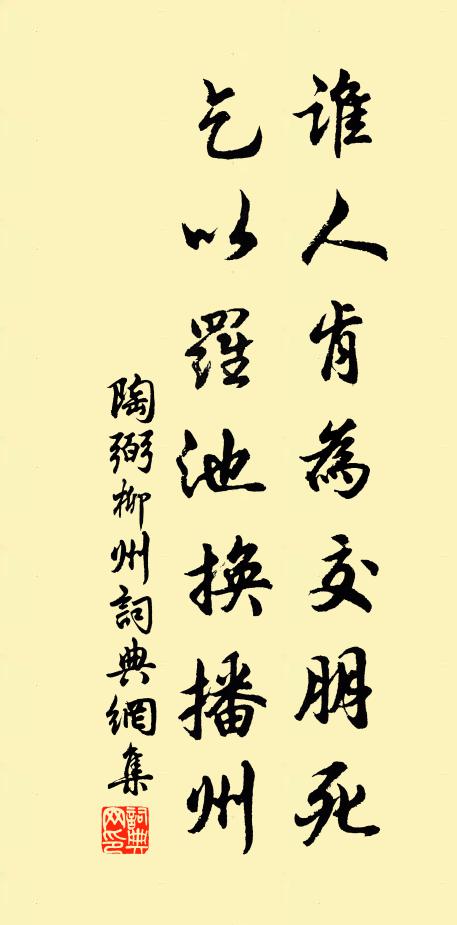 谁人肯為交朋死
乞以羅池換播州
陶弼柳州詞典網集
詞典網印